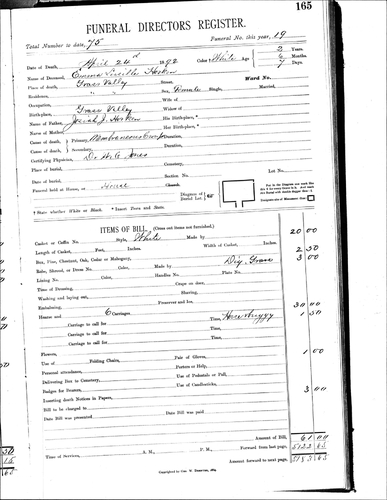 165
FUNERAL DIRECTORS REGISTER.
Total Number to date, 75 Funeral No. this year, 19
Date of Death, April 24 1892 Color White Age 2 Years.
Name of Deceased, Emma 6 Months.
Place of death, Grass Valley 7 Days.
Residence, " " Street, Ward No.
Occupation, Sex, Female Single, Married,
Birthplace, Grass Valley Wife of
Name of Father, Josiah J. Widow of
Name of Mother, His Birthplace,*
Cause of death, Primary, Membraneous Croup Her Birthplace,*
Cause of death, Secondary, Duration,
Certifying Physician, Dr Jones Duration,
Place of burial, Cemetery,
Date of burial, Section No. Lot No.
Funeral held at House, or House Church.
Diagram of Burial Lot
† State whether White or Black. * Insert Town and State.
ITEMS OF BILL. (Cross out items not furnished.)
Casket or Coffin No. Style, White Made by 20 00
Length of Casket, Feet, Inches. Width of Casket, Inches. 2 50
Box, Pine, Chestnut, Oak, Cedar or Mahogany, Dig. Grave 3 00
Robe, Shroud, or Dress No. Color, Made by
Lining No. Color, Handles No. Plate No.
Time of Dressing, Crape on door,
Washing and laying out, Shaving,
Embalming, Preserver and Ice,
Hearse and 6 Carriages 30 00
Carriage to call for Time, Horse & Buggy 1 50
Carriage to call for Time,
Carriage to call for Time,
Carriage to call for Time,
Flowers, Pair of Gloves, 1 00
Use of Folding Chairs, Porters or Help,
Personal attendance, Use of Pedestals or Pall,
Delivering Box to Cemetery, Use of Candlesticks,
Badges for Bearers, 3 00
Inserting death Notices in Papers,
Bill to be charged to
Date Bill was presented Date Bill was paid
Amount of Bill, 61 00
Time of Services, A. M., P. M., Forward from last page, 5122 65
Amount forward to next page, 5183 65